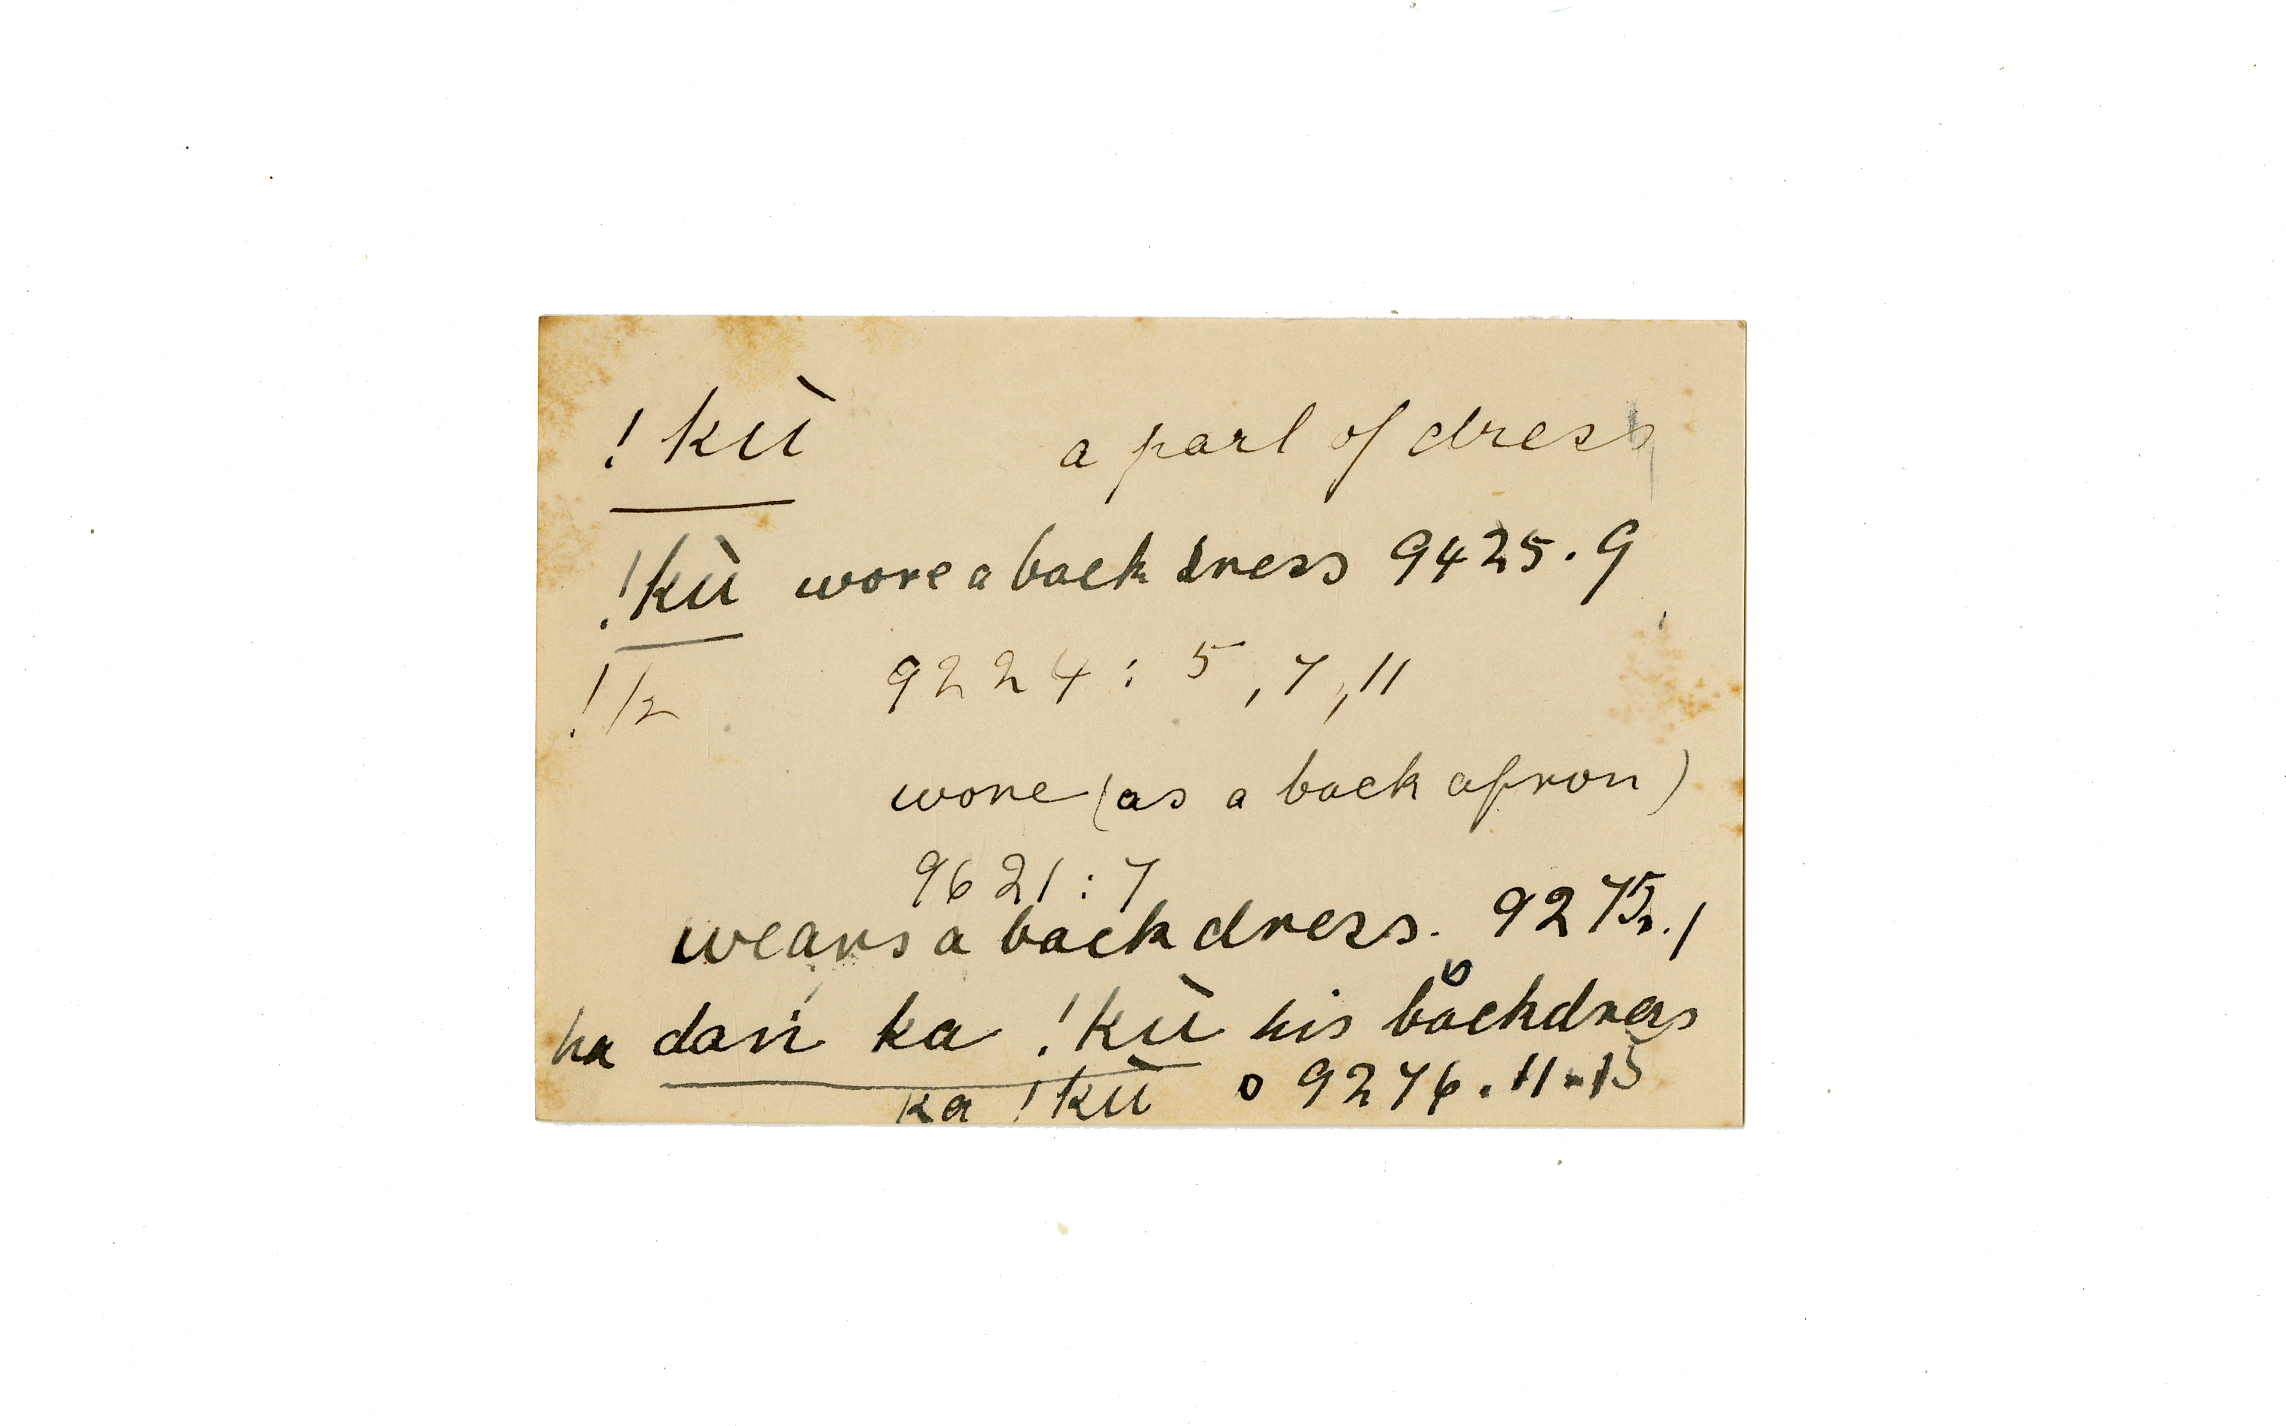 !kù a part of dress
!kù wore a back dress 9425.9
9224: 5, 7, 11
wore (as a back apron)
9621:7
wears a back dress. 9275.1
ha dań ka !kù his backdress
ka !kù 9276.11-15